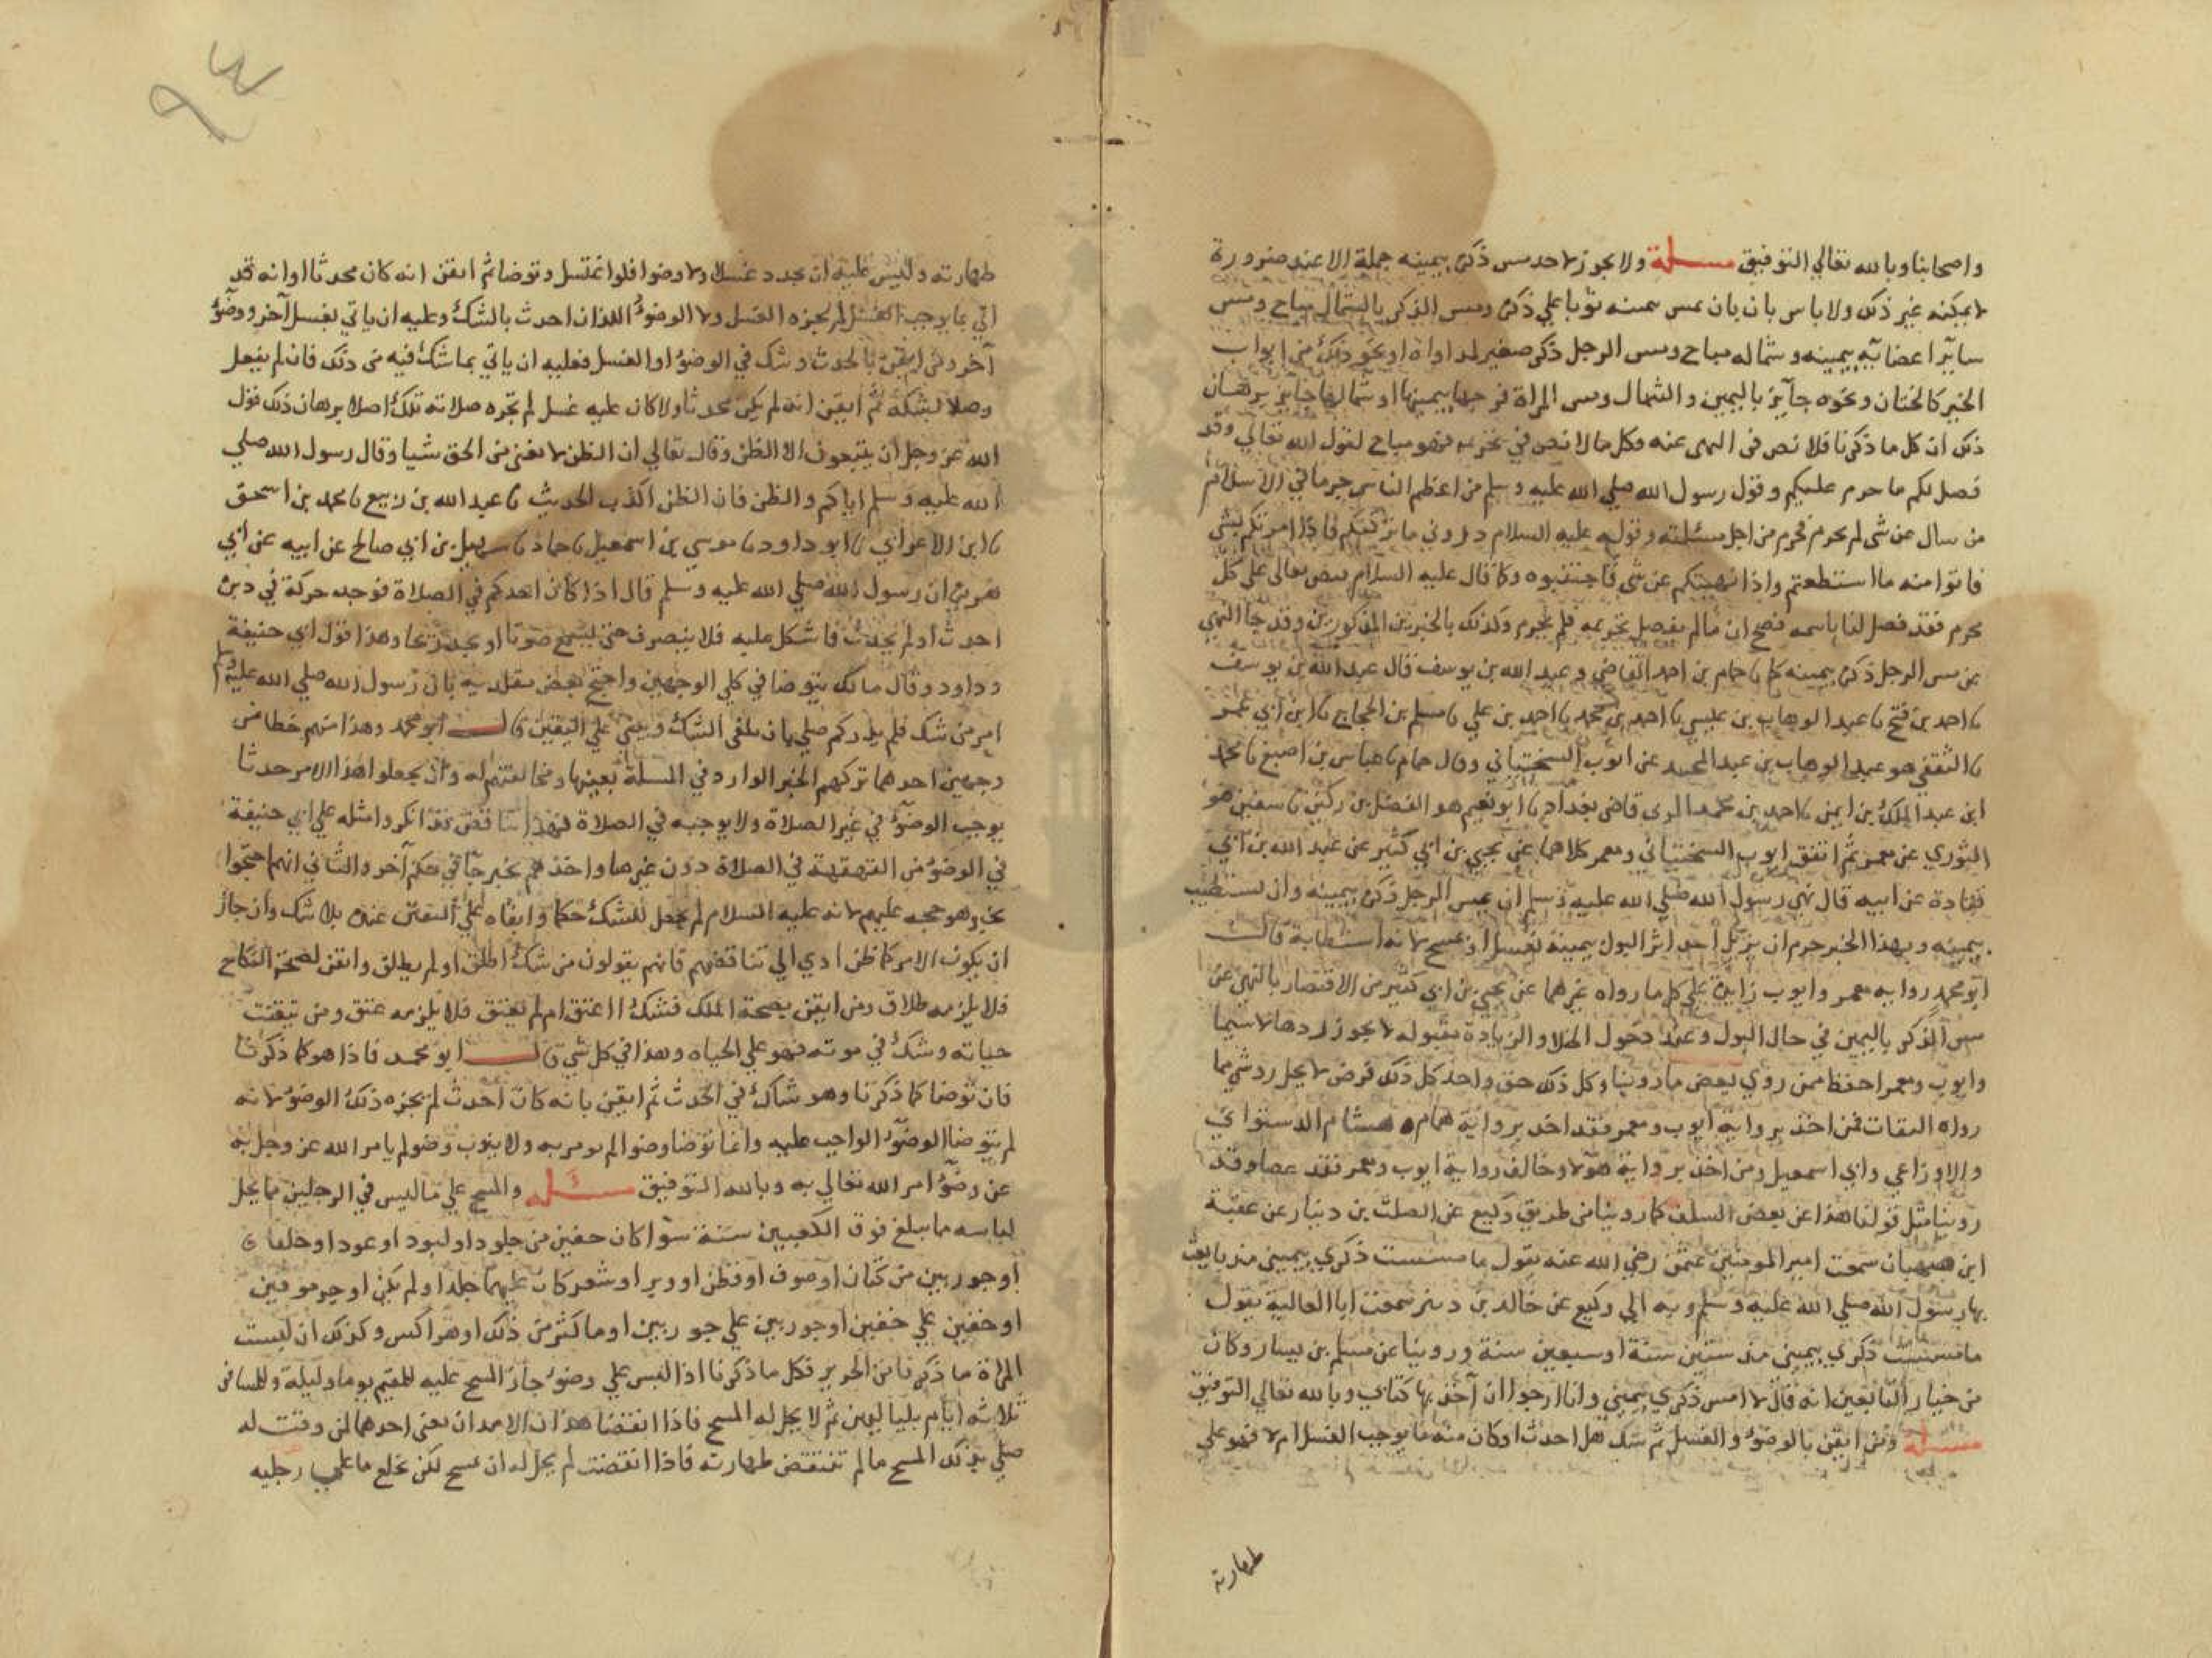 واصحابنا وبالله تعالي التوفيق مسلة ولا يجوز لاحد مس ذكره بيمينه جملة الا عند ضرورة
لا يمكنه غير ذلك ولا باس بان يمس بيمينه ثوبا علي ذكره ومس الذكر بالشمال مباح ومس
ساير اعضايه بيمينه وشماله مباح ومس الرجل ذكر صغير لمداواة او نحو ذلك من ابواب
الخير كالختان ونحوه جآيز باليمين والشمال ومس المراة فرجها بيمينها او شمالها جايز برهان
ذلك ان كل ما ذكرنا فلا نص في النهي عنه وكل ما لا نص في تحريمه فهو مباح لقول الله تعالي وقد
فصل لكم ما حرم عليكم وقول رسول الله صلي الله عليه وسلم من اعظم الناس جرما في الاسلام
من سال عن شي لم يحرم فحرم من اجل مسئلته وقوله عليه السلام ذروني ما تركتكم فاذا امرتكم بشي
فاتوا منه ما استطعتم واذا نهيتكم عن شي فاجتنبوه وكما قال عليه السلام نص تعالى على كل
محرم فقد فصل لنا باسمه فصح ان ما لم يفصل تحريمه فلم يحرم وكذلك بالخبرين المذكورين وقد جا النهي
عن مس الرجل ذكره بيمينه كما نا حمام بن احمد القاضي وعبد الله بن يوسف قال عبد الله بن يوسف
نا احمد بن فتح نا عبد الوهاب بن عيسي نا احمد بن محمد نا احمد بن علي نا مسلم بن الحجاج نا ابن ابي عمر
نا الثقفي هو عبد الوهاب بن عبد المجيد عن ايوب السختياني وقال حمام نا عباس بن اصبغ نا محمد
ابن عبد الملك بن ايمن نا احمد بن محمد البرى قاضي بغداد نا ابو نعيم هو الفضل بن دكين نا سفين هو
الثوري عن معمر ثم اتفق ايوب السختياني ومعمر كلاهما عن يحيي بن ابي كثير عن عبد الله بن ابي
قتادة عن ابيه قال نهى رسول الله صلي الله عليه وسلم ان يمس الرجل ذكره بيمينه وان يستطيب
بيمينه وبهذا الخبر حرم ان يزيل احد اثر البول بيمينه بغسل او مسح لانه استطابة قال
ابو محمد روايه معمر وايوب زايدة علي كل ما رواه غيرهما عن يحيي بن ابي كثير من الاقتصار بالنهي عن
مس الذكر باليمين في حال البول وعند دخول الخلاء والزيادة مقبولة لا يجوز ردها لا سيما
وايوب ومعمر احفظ ممن روي بعض ما روينا وكل ذلك حق واخذ كل ذلك فرض لا يحل رد شي مما
رواه الثقات فمن اخذ برواية ايوب ومعمر فقد اخذ برواية همام وهشام الدستواي
والاوزاعي وابي اسمعيل ومن اخذ برواية هولا وخالف رواية ايوب ومعمر فقد عصا وقد
روينا مثل قولنا هذا عن بعض السلف كما روينا من طريق وكيع عن الصلت بن دينار عن عقبة
ابن صهبان سمعت امير المومنين عثمن رضي الله عنه يقول ما مسست ذكري بيميني منذ بايعت
بها رسول الله صلي الله عليه وسلم وبه الي وكيع عن خالد بن دينر سمعت ابا العالية يقول
ما مسست ذكري بيميني منذ ستين سنة او سبعين سنة وروينا عن مسلم بن يسار وكان
من خيار التابعين انه قال لا امس ذكري بيميني وانا ارجوا ان آخذ بها كتابي وبالله تعالي التوفيق
مسلة ومن ايقن بالوضوء والغسل ثم شك هل احدث او كان منه ما يوجب الغسل ام لا فهو علي
طهارته
٩٤
طهارته وليس عليه ان يجدد غسلا ولا وضوا فلو اغتسل وتوضا ثم ايقن انه كان محدثا او انه قد
اتي بما يوجب الغسل لم يجزه الغسل ولا الوضوء اللذان احدث بالشك وعليه ان ياتي بغسل آخر ووضوء
آخر ومن ايقن بالحدث وشك في الوضوء او الغسل فعليه ان ياتي بما شك فيه من ذلك فان لم يفعل
وصلا بشكه ثم ايقن انه لم يكن محدثا ولا كان عليه غسل لم تجزه صلاته تلك اصلا برهان ذلك قول
الله عز وجل ان يتبعون الا الظن وقال تعالي ان الظن لا يغني من الحق شيا وقال رسول الله صلي
الله عليه وسلم اياكم والظن فان الظن اكذب الحديث نا عبد الله بن ربيع نا محمد بن اسحق
نا ابن الاعرابي نا ابو داود نا موسي بن اسمعيل نا حماد نا سهيل بن ابي صالح عن ابيه عن ابي
هريرة ان رسول الله صلي الله عليه وسلم قال اذا كان احدكم في الصلاة فوجد حركة في دبره
احدث او لم يحدث فاشكل عليه فلا ينصرف حتى يسمع صوتا او يجد ريحا وهذا قول ابي حنيفة
وداود وقال مالك يتوضا في كلي الوجهين واحتج بعض مقلديه بان رسول الله صلي الله عليه وسلم
امر من شك فلم يدر كم صلي بان يلغي الشك ويبني علي اليقين قال ابو محمد وهذا منهم خطا من
وجهين احدهما تركهم الخبر الوارد في المسلة بعينها ومخالفتهم له وان يجعلوا هذا الامر حدثا
يوجب الوضوء في غير الصلاة ولا يوجبه في الصلاة فهذا تناقض قد انكروا مثله علي ابي حنيفة
في الوضوء من القهقهة في الصلاة دون غيرها واخذهم بخبر جا في حكم آخر والثاني انهم احتجوا
بخبر هو حجه عليهم لانه عليه السلام لم يجعل للشك حكما وابقاه علي اليقين عنده بلا شك وان جاز
ان يكون الامر كما ظن ادي الي تناقضهم فانهم يقولون من شك اطلق او لم يطلق وايقن لصحة النكاح
فلا يلزمه طلاق ومن ايقن بصحة الملك فشك ااعتق ام لم يعتق فلا يلزمه عتق ومن تيقنت
حياته وشك في موته فهو علي الحياه وهذا في كل شي قال ابو محمد فاذا هو كما ذكرنا
فان توضا كما ذكرنا وهو شاك في الحدث ثم ايقن بانه كان احدث لم يجزه ذلك الوضوء لانه
لم يتوضا الوضوء الواجب عليه وانما توضا وضوا لم يومر به ولا ينوب وضو لم يامر الله عز وجل به
عن وضوء امر الله تعالي به وبالله التوفيق مسئله والمسح علي ما لبس في الرجلين مما يحل
لباسه مما يبلغ فوق الكعبين سنة سوا كان خفين من جلود او لبود او عود او حلفا
او جوربين من كتان او صوف او قطن او وبر او شعر كان عليهما جلد او لم يكن او جرموقين
او خفين علي خفين او جوربين علي جوربين او ما كثر من ذلك او هراكس وكذلك ان لبست
المراة ما ذكرنا من الحرير فكل ما ذكرنا اذا لبس علي وضوء جاز المسح عليه للمقيم يوما وليلة وللمسافر
ثلاثه ايام بلياليهن ثم لا يحل له المسح فاذا انقضا هذان الامدان يعني احدهما لمن وقت له
صلي بذلك المسح ما لم تنتقض طهارته فاذا انتقضت لم يحل له ان يمسح لكن يخلع ما علي رجليه